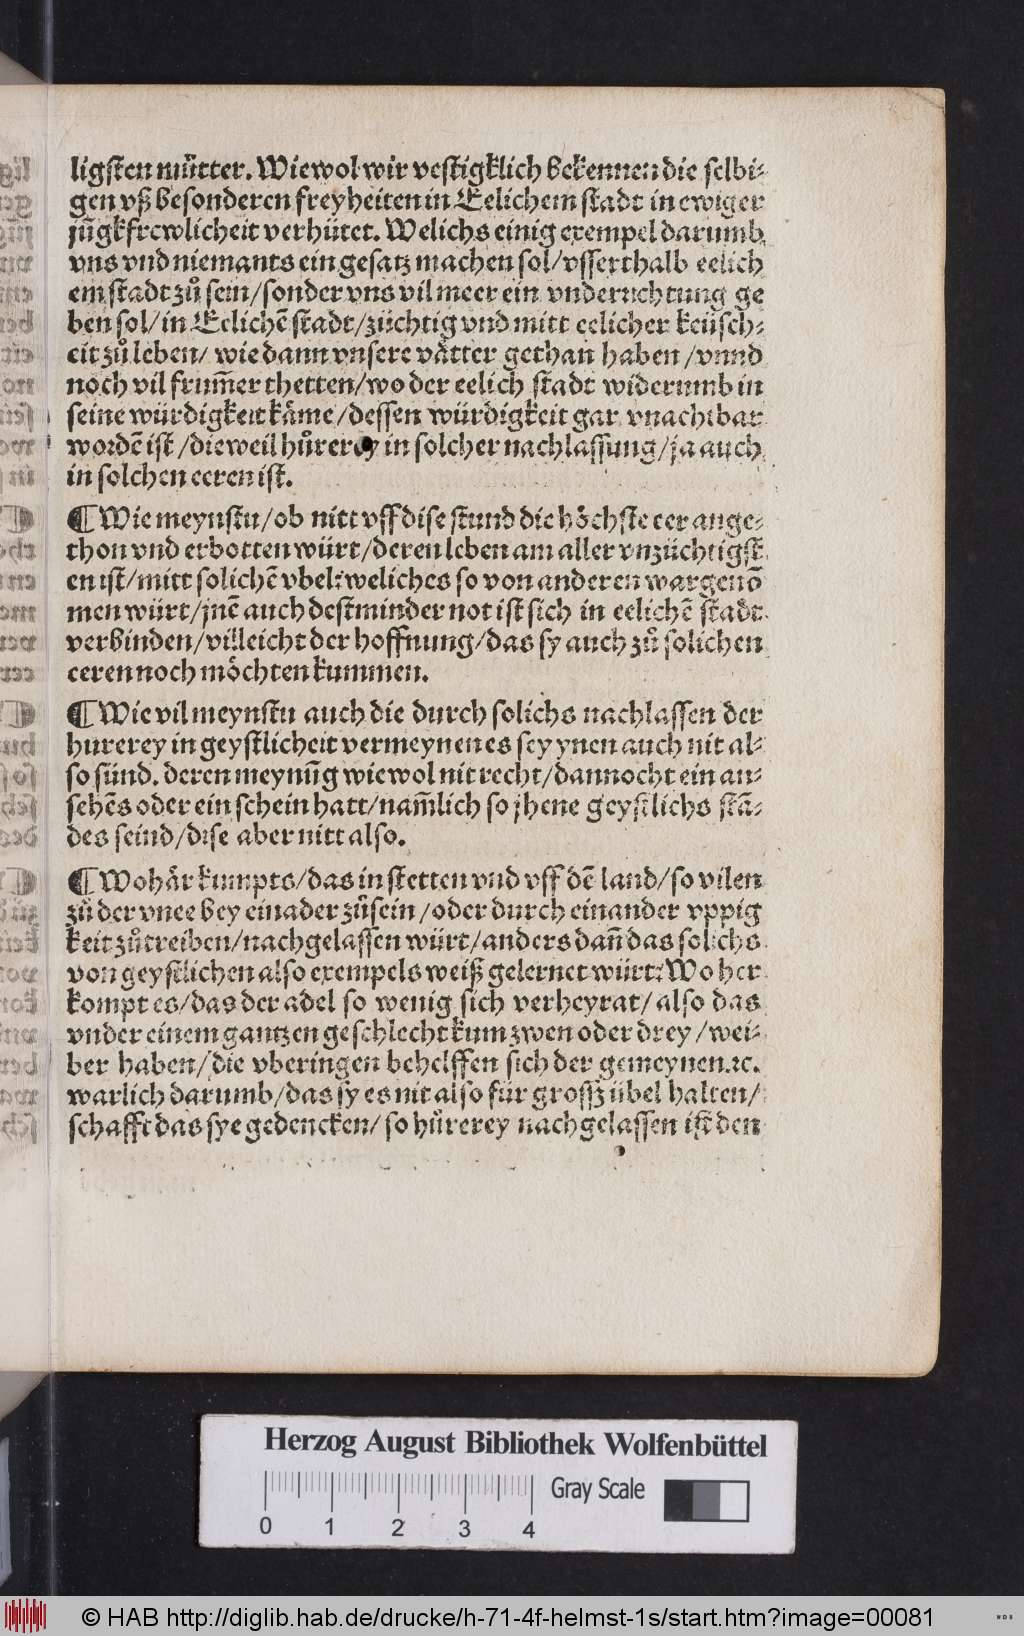 ligsten mütter. Wiewol wir vestigklich bekennen die selbi⸗
gen vß besonderen freyheiten in Eelichem stadt in ewiger
jūgkfrewlicheit verhütet. Welichs einig exempel darumb
vns vnd niemants ein gesatz machen sol/vsserthalb eelich
em stadt zů sein/sonder vns vil meer ein vnderrichtung ge
ben sol/in Eelichē stadt/züchtig vnd mitt eelicher keüsch⸗
eit zů leben/ wie dann vnsere vätter gethan haben/vnnd
noch vil frum̄er thetten/wo der eelich stadt widerumb in
seine würdigkeit käme/dessen würdigkeit gar vnachtbar
wordē ist/dieweil hůrerey in solcher nachlassung/ja auch
in solchen eeren ist.
¶ Wie meynstu/ob nitt vff dise stund die höchste eer ange⸗
thon vnd erbotten würt/deren leben am aller vnzüchtigst
en ist/mitt solichē vbel: weliches so von anderen wargenō
men würt/jnē auch destminder not ist sich in eelichē stadt
verbinden/villeicht der hoffnung/das sy auch zů solichen
eeren noch möchten kummen.
¶ Wie vil meynstu auch die durch solichs nachlassen der
hurerey in geystlicheit vermeynen es sey ynen auch nit al⸗
so sünd. deren meynūg wiewol nit recht/dannocht ein an⸗
sehēs oder ein schein hatt/nam̄lich so jhene geystlichs stā⸗
des seind/dise aber nitt also.
¶ Wohär kumpts/das in stetten vnd vff dē land/so vilen
zů der vnee bey einader zůsein/oder durch einander vppig
keit zůtreiben/nachgelassen würt/anders dan̄ das solichs
von geystlichen also exempels weiß gelernet würt: Wo her
kompt es/das der adel so wenig sich verheyrat/also das
vnder einem gantzen geschlecht kum zwen oder drey/wei⸗
ber haben/die vberingen behelffen sich der gemeynen.ꝛc.
warlich darumb/das sy es nit also für grossz übel halten/
schafft das sye gedencken/so hůrerey nachgelassen ist den
Herzog August Bibliothek Wolfenbüttel
0 1 2 3 4 Gray Scale
© HAB http://diglib.hab.de/drucke/h-71-4f-helmst-1s/start.htm?image=00081